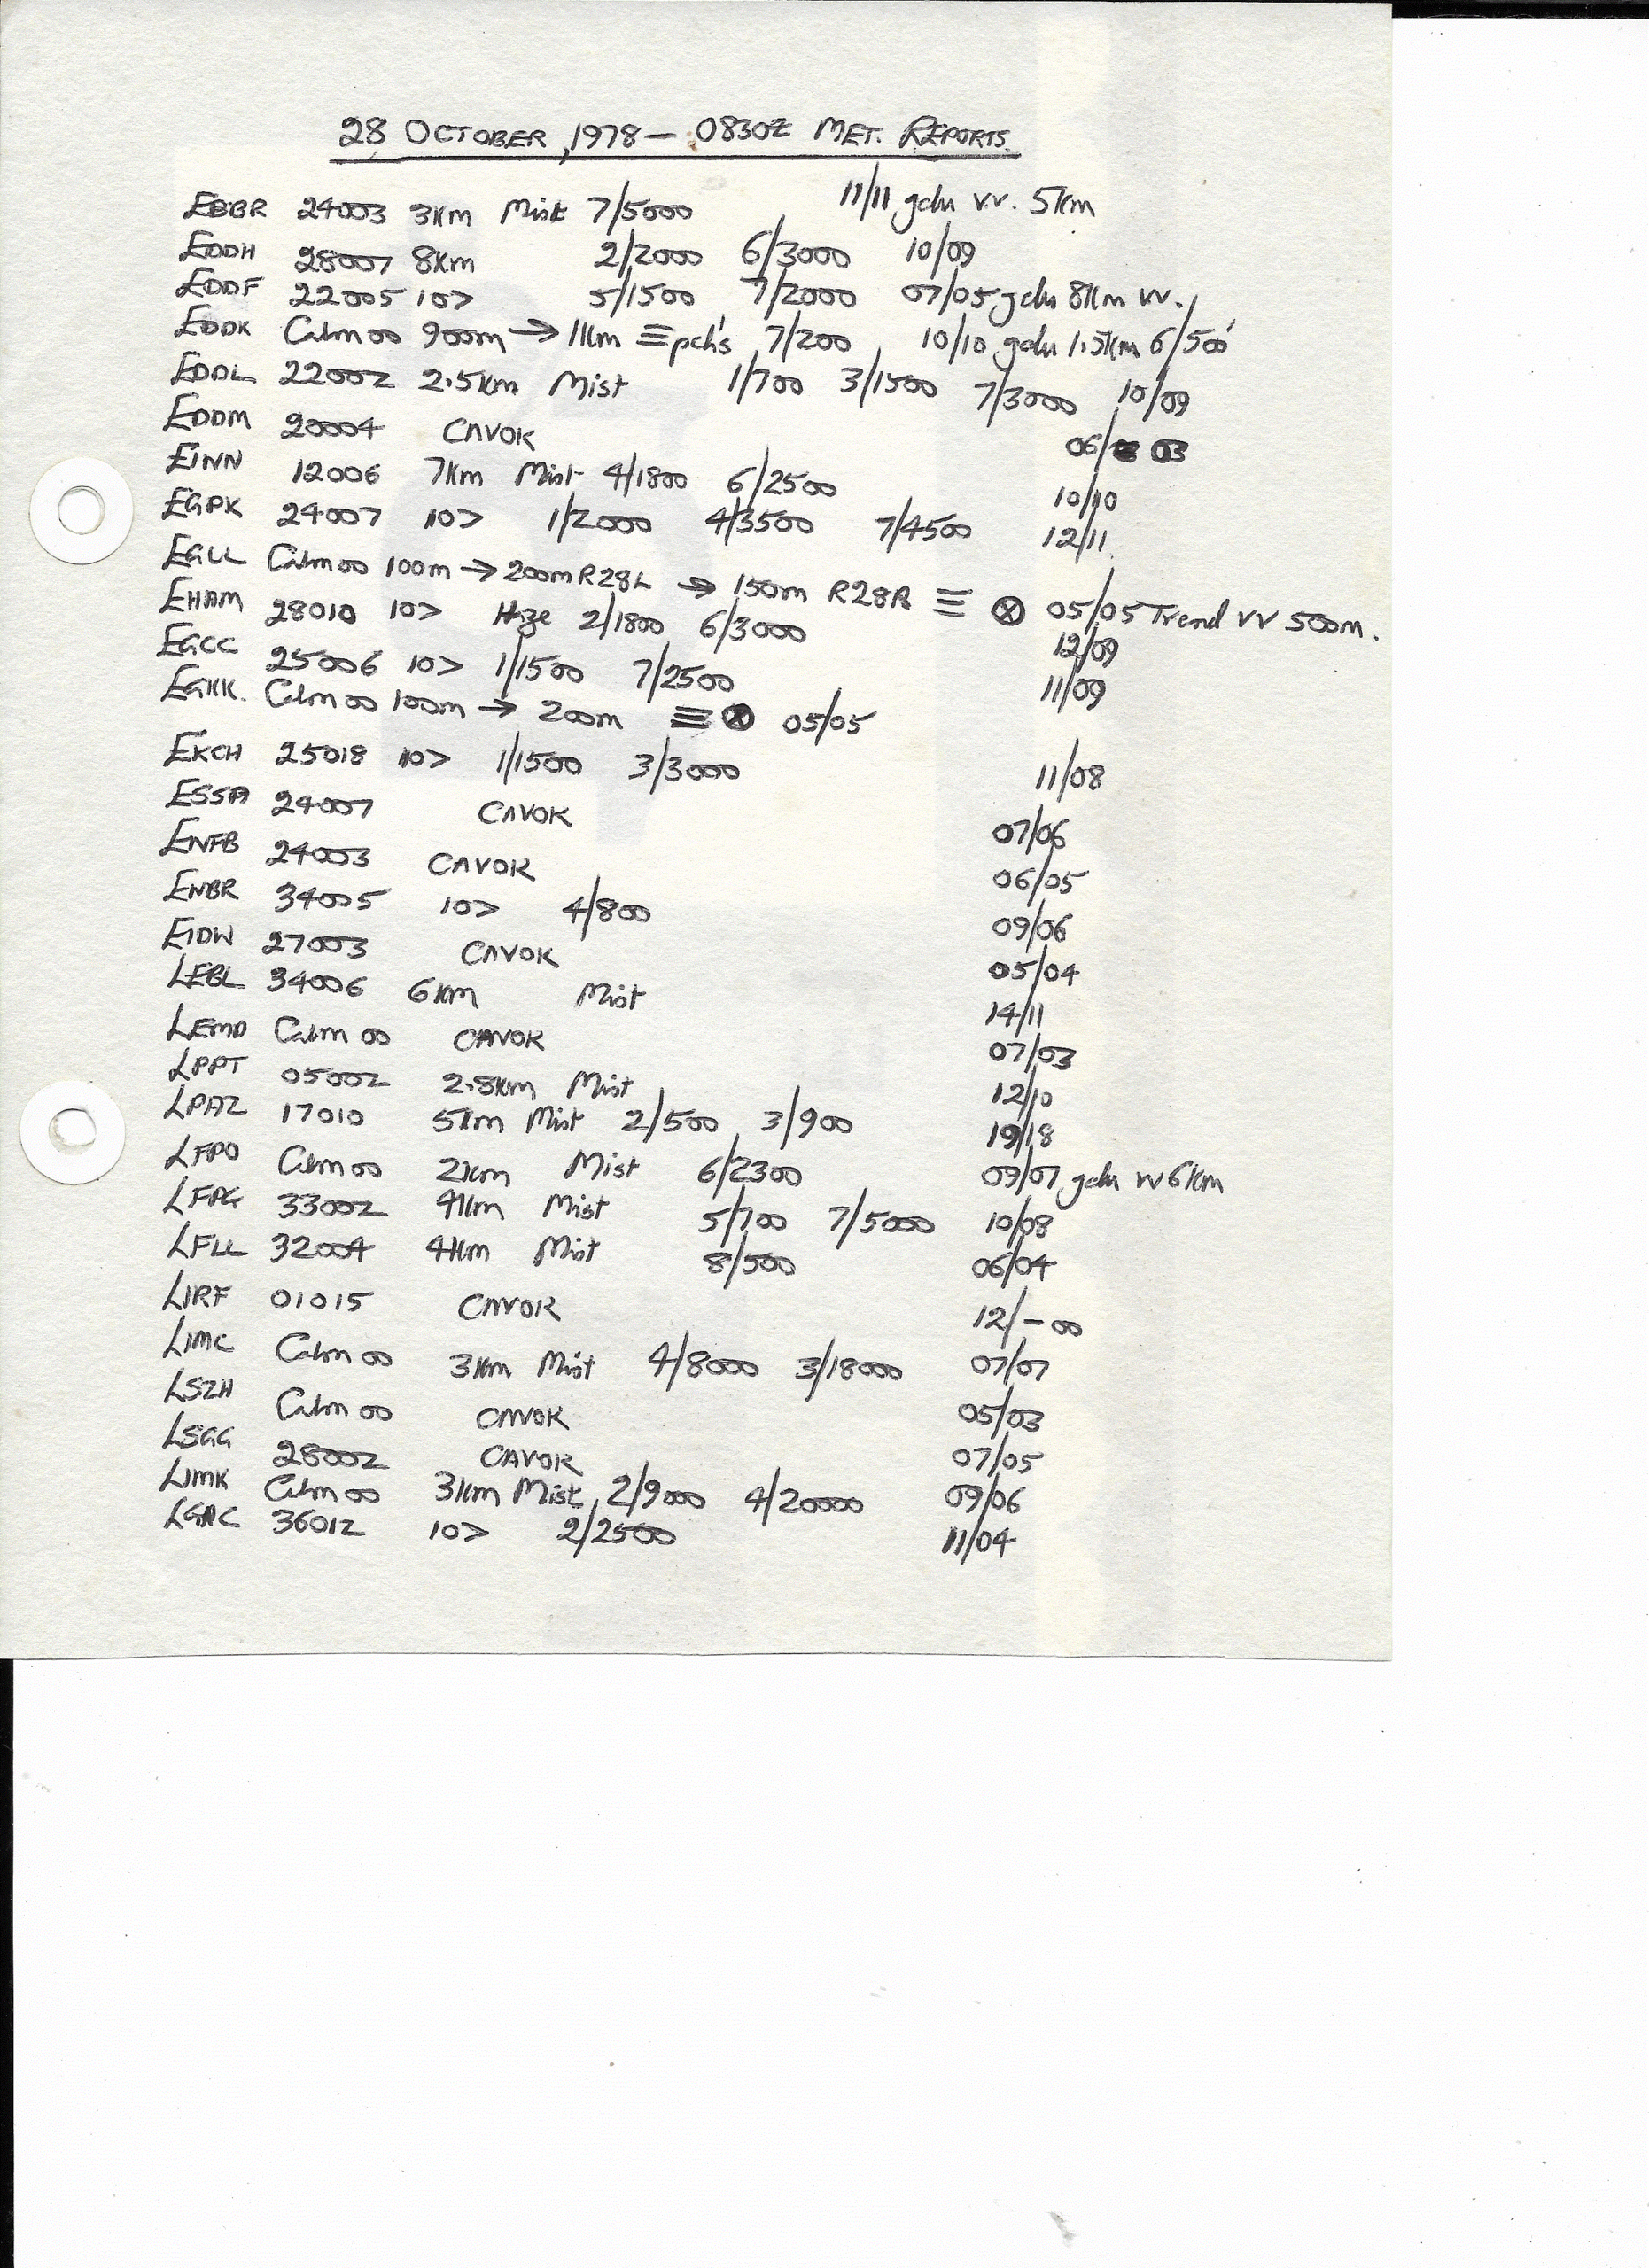 28 OCTOBER, 1978 - 0830Z MET. REPORTS.
EBBR 24003 3Km Mist 7/5000 11/11 gdu vv. 5km
EDDH 28007 8Km 2/2000 6/3000 10/09
EDDF 22005 10> 5/1500 7/2000 07/05 gdu 8Km vv.
EDDK Calm 00 900m → 1Km ≡ pch's 7/200 10/10 gdu 1.5Km 6/500'
EDDL 22002 2.5Km Mist 1/700 3/1500 7/3000 10/09
EDDM 20004 CAVOK 06/03
EINN 12006 7Km Mist 4/1800 6/2500 10/10
EGPK 24007 10> 1/2000 4/3500 7/4500 12/11
EGLL Calm 00 100m → 200m R28L → 150m R28R ≡ ⊗ 05/05 Trend VV 500m.
EHAM 28010 10> Haze 2/1800 6/3000 12/09
EGCC 25006 10> 1/1500 7/2500 11/09
EGKK. Calm 00 100m → 200m ≡ ⊗ 05/05
EKCH 25018 10> 1/1500 3/3000 11/08
ESSA 24007 CAVOK 07/06
ENFB 24003 CAVOK 06/05
ENBR 34005 10> 4/800 09/06
EIDW 27003 CAVOK 05/04
LEBL 34006 6Km Mist 14/11
LEMD Calm 00 CAVOK 07/03
LPPT 05002 2.8Km Mist 12/10
LPAZ 17010 5Km Mist 2/500 3/900 19/18
LFPO Calm 00 2Km Mist 6/2300 09/07 gdu vv 6Km
LFPG 33002 4Km Mist 5/700 7/5000 10/08
LFLL 32004 4Km Mist 8/500 06/04
LIRF 01015 CAVOK 12/-00
LIMC Calm 00 3Km Mist 4/8000 3/18000 07/07
LSZH Calm 00 CAVOK 05/03
LSGG 28002 CAVOK 07/05
LIMK Calm 00 3Km Mist 2/9000 4/20000 09/06
LGAC 36012 10> 2/2500 11/04